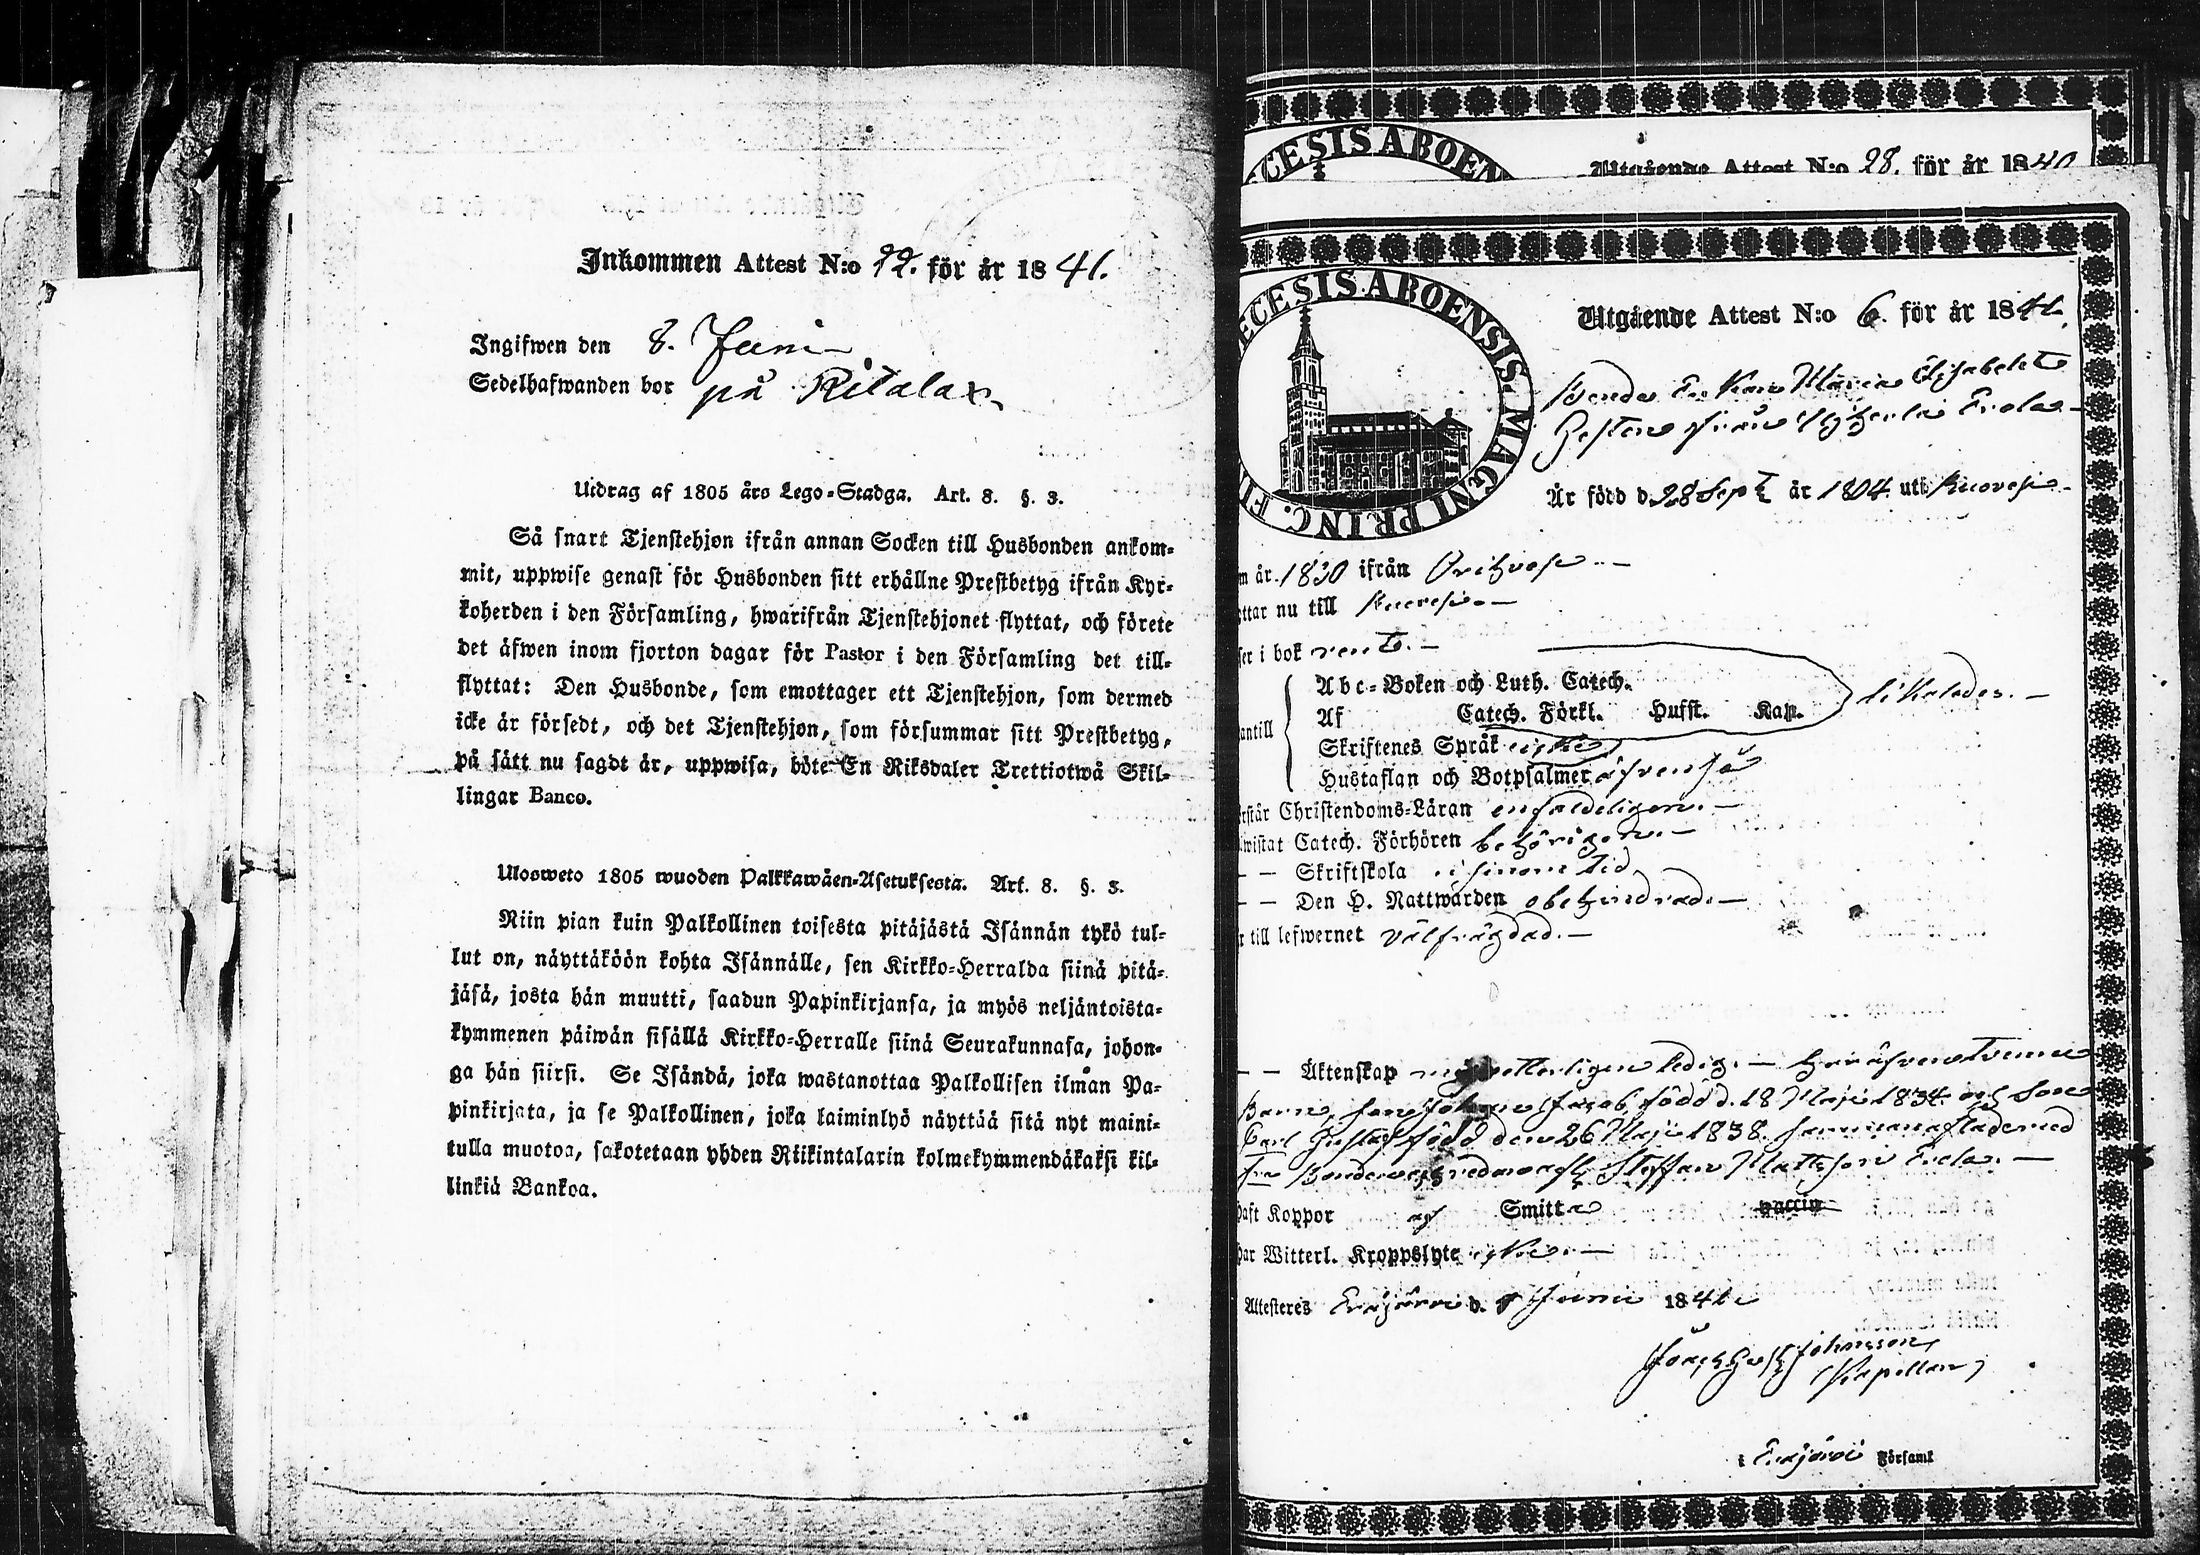 Inkommen Attest N:o 22. för år 1841.
Ingifwen den 8. Juni
Sedelhafwanden bor på Ritalax
Utdrag af 1805 års Lego-Stadga. Art. 8. §. 3.
Så snart Tjenstehjon ifrån annan Socken till Husbonden ankom-
mit, uppwise genast för Husbonden sitt erhållne Prestbetyg ifrån Kyr-
koherden i den Församling, hwarifrån Tjenstehjonet flyttat, och förete
det äfwen inom fjorton dagar för Pastor i den Församling det till-
flyttat: Den Husbonde, som emottager ett Tjenstehjon, som dermed
icke är försedt, och det Tjenstehjon, som försummar sitt Prestbetyg,
på sätt nu sagdt är, uppwisa, böte En Riksdaler Trettiotwå Skil-
lingar Banco.
Ulosweto 1805 wuoden Palkkawäen-Asetuksesta. Art. 8. §. 3.
Niin pian kuin Palkollinen toisesta pitäjästä Isännän tykö tul-
lut on, näyttäköön kohta Isännälle, sen Kirkko-Herralda siinä pitä-
jäsä, josta hän muutti, saadun Papinkirjansa, ja myös neljäntoista-
kymmenen päiwän sisällä Kirkko-Herralle siinä Seurakunnasa, johon-
ga hän siirsi. Se Isändä, joka wastanottaa Palkollisen ilman Pa-
pinkirjata, ja se Palkollinen, joka laiminlyö näyttää sitä nyt maini-
tulla muotoa, sakotetaan yhden Riikintalarin kolmekymmendäkaksi kil-
linkiä Bankoa.
ECESIS ABOEN
Utgående Attest N:o 28. för år 1840
ECESIS ABOENSIS. MAGNI PRINC. FI
Utgående Attest N:o 6. för år 1841.
Bonde Enkan Maria Elisabeth
Är född d. 28 Sept år 1804 uti Kuorevesi
m år 1830 ifrån Orihvesi
ttar nu till Kuorevesi
ser i bok rent.
Abc-Boken och Luth. Catech.
antill Af Catech. Förkl. Husst. Kap. likaledes.
Skriftenes Språk
Hustaflan och Botpsalmer äfvenså
rstår Christendoms-Läran enfaldeligen.
wistat Catech. Förhören behörigen.
— — Skriftskola i sinom tid
— — Den H. Nattwarden obehindrad.
r till lefwernet välfrägdad.
— — Äktenskap ledig. — har äfven tvenne
Barn, son Johan Jacob född d. 18 Maji 1834 och son
Carl Gustaf född den 26 Maji 1838 sammanaflade med
Bonden Steffan Mattsson Erola.
haft Koppor Smitta vaccin
har Witterl. Kroppslyte icke.
Attesteres Eräjärvi d. Juni 1841
Johansson
Kapellan
i Eräjärvi Församl